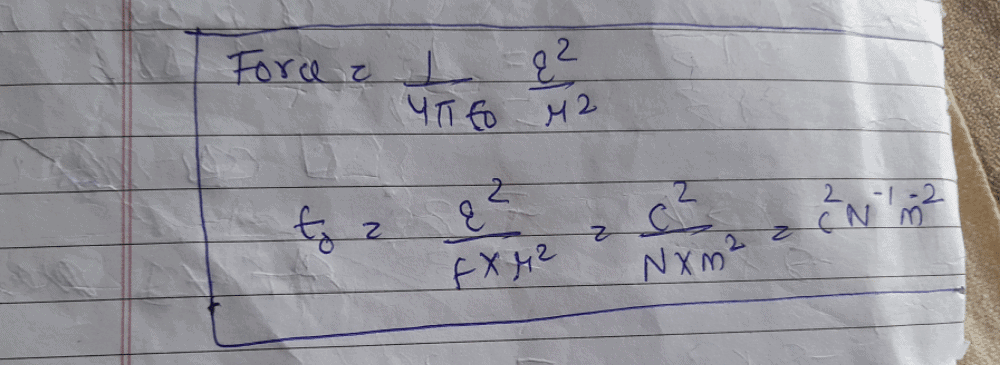 Force = 1/4πε₀ q²/r²
ε₀ = q²/F×r² = C²/N×m² = C²N⁻¹m⁻²